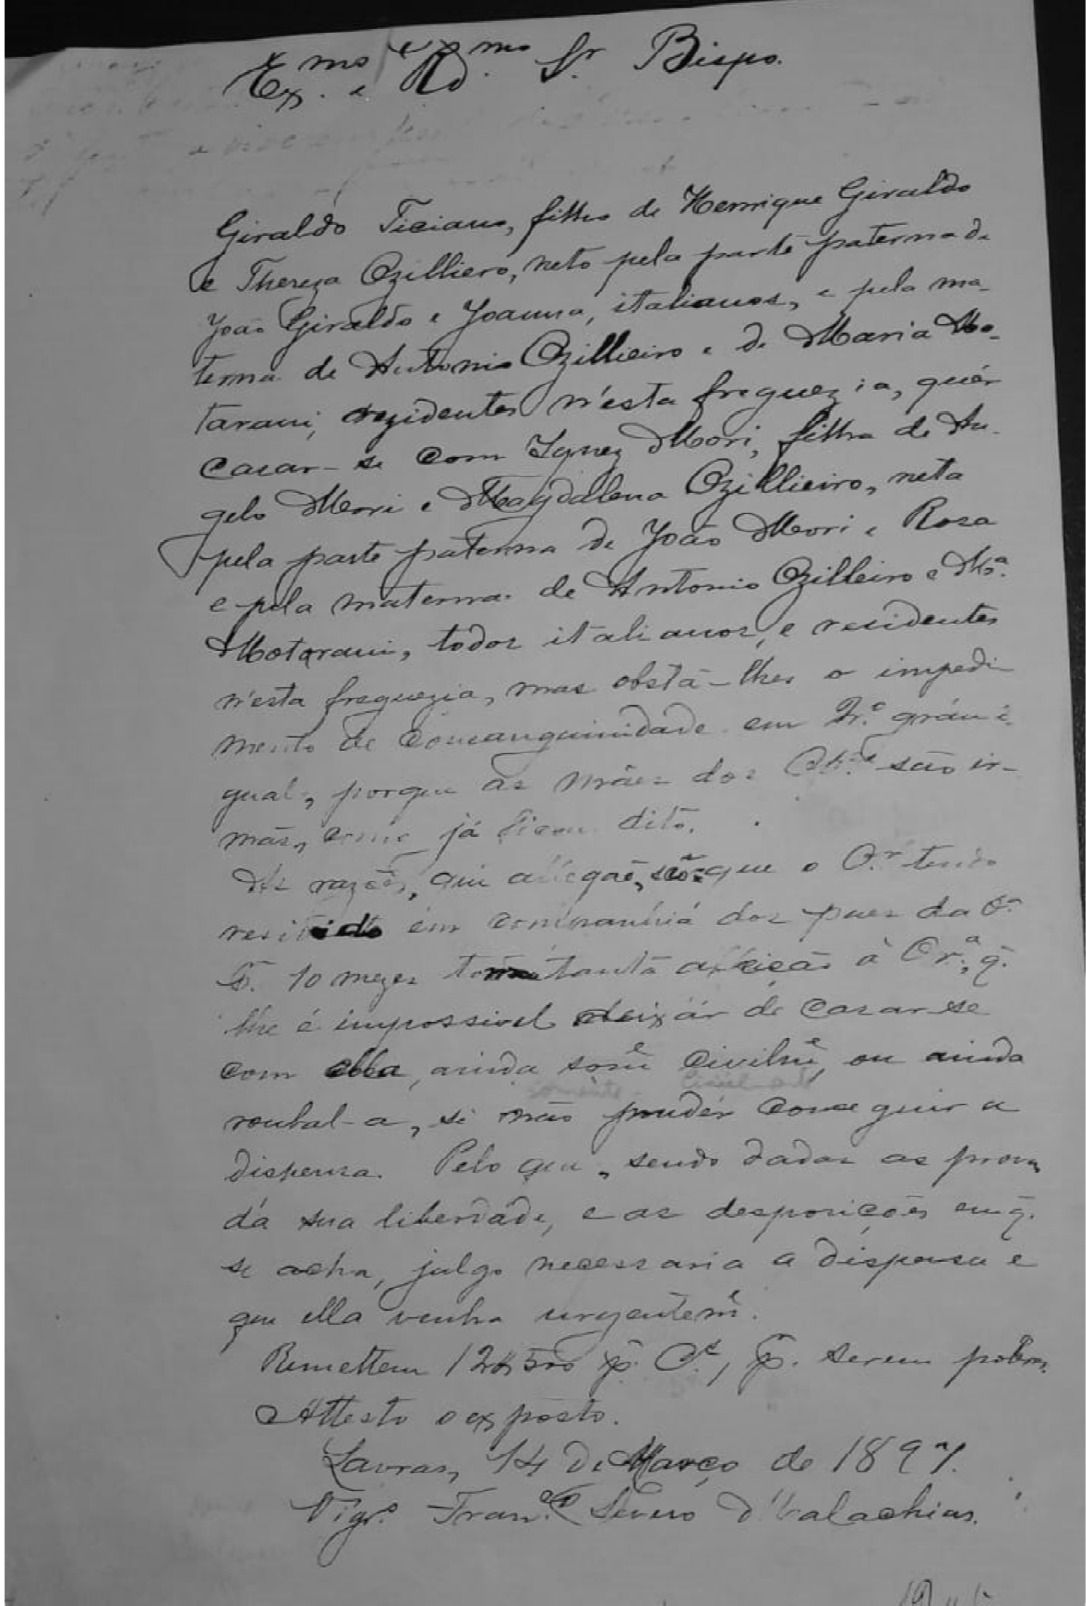 Ex.mo e Rd.mo Sr Bispo.
Giraldo Ticiano, filho de Henrique Giraldo
e Thereza Ozilliero, neto pela parte paterna de
João Giraldo e Joanna, italianos, e pela ma-
terna de Antonio Ozillieiro e de Maria Mo-
tarani, rezidentes n'esta freguezia, quér
casar-se com Ignez Mori, filha de An-
gelo Mori e Magdalena Ozillieiro, neta
pela parte paterna de João Mori e Rosa
e pela materna de Antonio Ozilleiro e Mª.
Motarani, todos italianos, e residentes
n'esta freguezia, mas obstá-lhes o impedi-
mento de consanguinidade em 2.º gráu i-
gual, porque as mãis dos Or.es são ir-
mãs, como já ficou dito.
As razões, que allegão, são que o Or. tendo
residido em companhia dos paes da Or.ª
p. 10 mezes tem tanta affeição á Or.ª, q.
lhe é impossivel deixár de casar-se
com ella, ainda som.e civilm.e, ou ainda
somente civilmente
roubal-a, si não pudér conseguir a
dispensa. Pelo que, sendo dadas as provas
dá sua liberdade, e as desposições em q.
se acha, julgo necessaria a dispensa e
que ella venha urgentem.e.
Remettem 12$500 p. Or.s, p. serem pobres.
Attesto o exposto.
Lavras, 14 de Março de 1897.
Vigr.º Fran.co Severo Malachias.